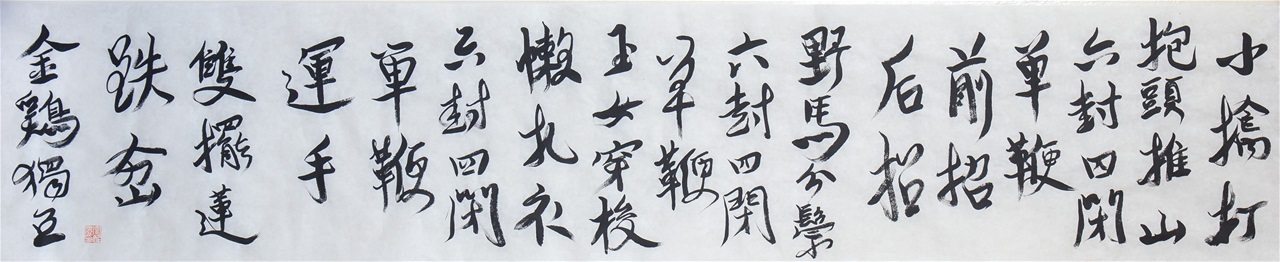 小擒打
抱頭推山
六封四閉
单鞭
前招
后招
野馬分鬃
六封四閉
单鞭
玉女穿梭
懒扎衣
六封四閉
單鞭
運手
雙擺蓮
跌岔
金鷄獨立